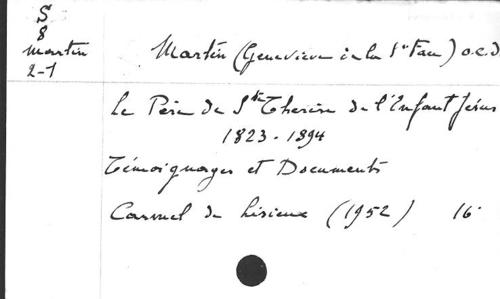 S
8
Martin
2-1
Martin (Geneviève de la Ste Face) o.c.d
Le Père de Ste Thérèse de l'Enfant Jésus
1823-1894
Témoignages et Documents
Carmel de Lisieux (1952) 16°